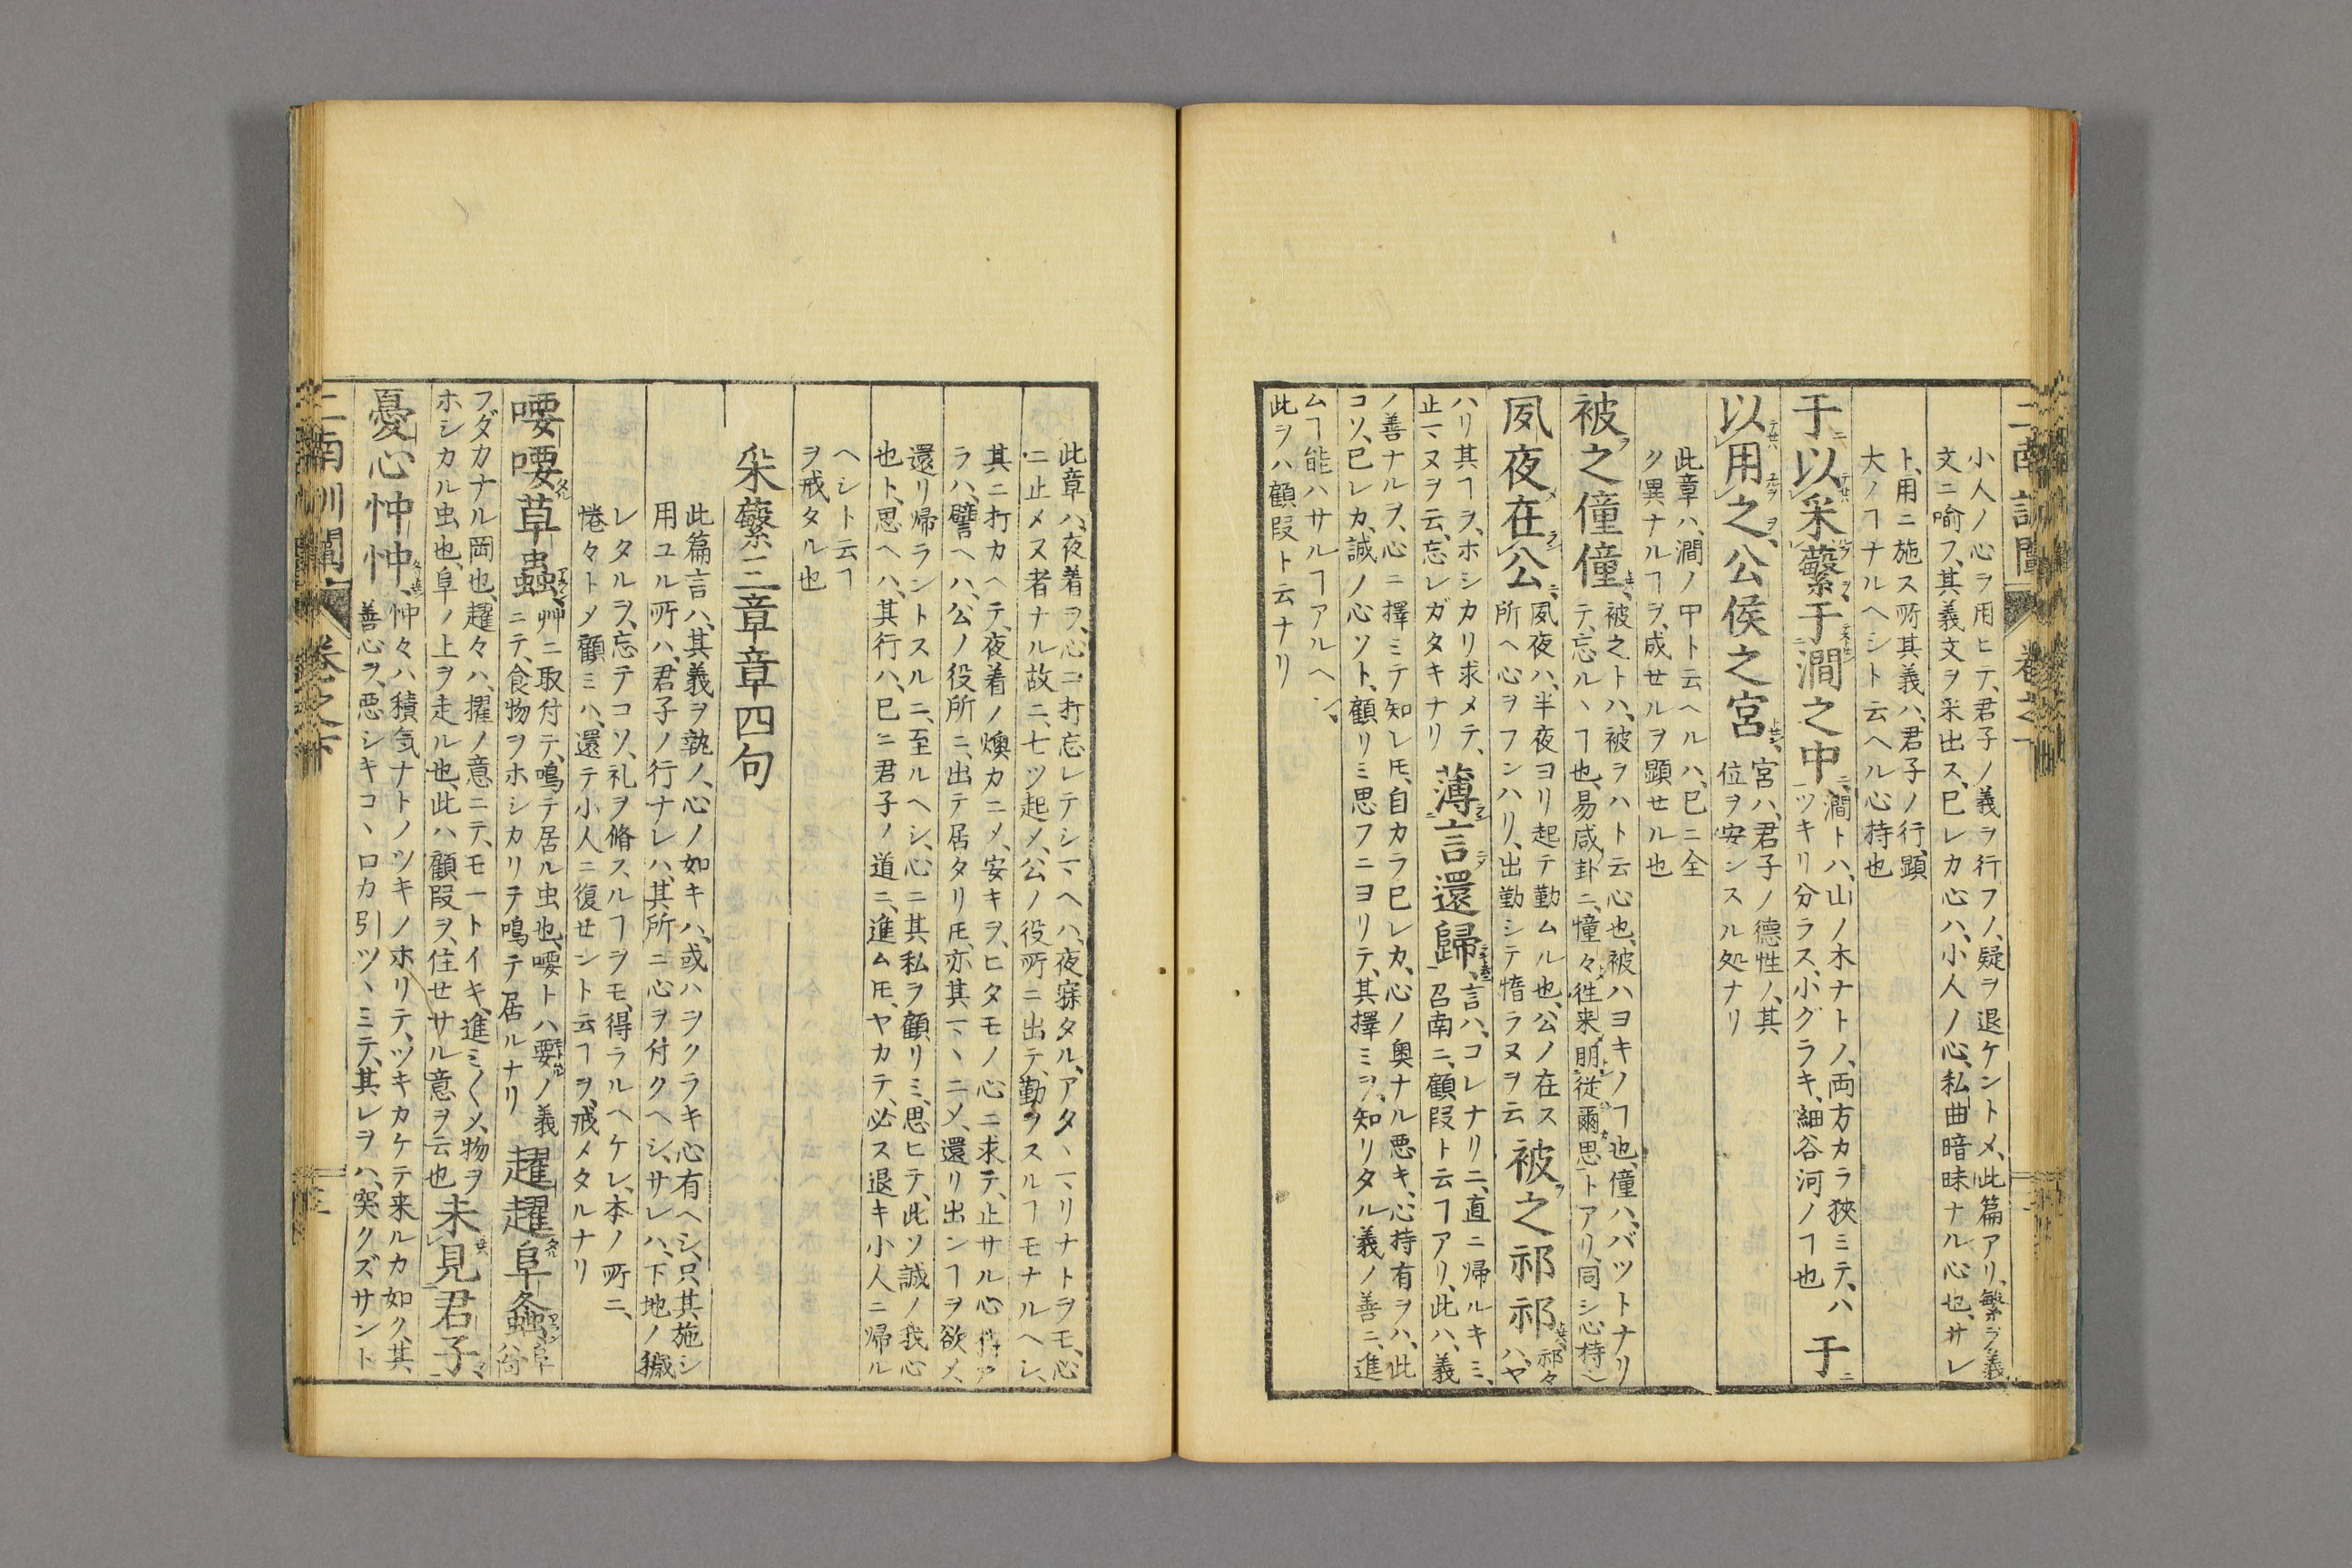 小人ノ心ヲ用ヒテ、君子ノ義ヲ行フノ、疑ヲ退ケントメ、此篇アリ、繁ヲ義
文ニ喻フ、其義文ヲ采出ス、已レカ心ハ、小人ノ心、私曲暗昧ナル心也、サレ
ト、用ニ施ス所其義ハ、君子ノ行、顕
大ノヿナルヘシト云ヘル心持也
于以采蘩、于澗之中、澗トハ、山ノ木ナトノ、両方カラ狹ミテ、ハ
ツキリ分ラス、小グラキ、細谷河ノヿ也 于
以用之、公侯之宮、宮ハ、君子ノ德性ノ、其
位ヲ安ンスル処ナリ
此章ハ、澗ノ中ト云ヘルハ、已ニ全
ク異ナルヿヲ、成セルヲ顕セル也
被之僮僮、被之トハ、被ヲハト云心也、被ハヨキノヿ也、僮ハ、バツトナリ
テ、忘ルヽヿ也、易咸卦ニ、憧々往来朋従爾思トアリ、同シ心持〜
夙夜在公、夙夜ハ、半夜ヨリ起テ勤ムル也、公ノ在ス
所ヘ心ヲフンハリ、出勤シテ惰ラヌヲ云 被之祁祁、祁々ハ、ヤ
ハリ其ヿヲ、ホシカリ求メテ、
止マヌヲ云、忘レガタキナリ 薄言還歸、言ハ、コレナリニ、直ニ帰ルキミ、
召南ニ、顧叚ト云ヿアリ、此ハ、義
ノ善ナルヲ、心ニ擇ミテ知レ𪜈、自カラ已レカ、心ノ奥ナル悪キ、心持有ヲハ、此
コソ、已レカ、誠ノ心ソト、顧リミ思フニヨリテ、其擇ミヲ、知リタル義ノ善ニ、進
ムヿ能ハサルヿアルヘシ、
此ヲハ顧叚ト云ナリ
此章ハ、夜着ヲ、心ニ打忘レテシマヘハ、夜寐タル、アタヽマリナトヲモ、心
ニ止メヌ者ナル故ニ、七ツ起メ、公ノ役所ニ出テ、勤ヲスルヿモナルヘシ、
其ニ打カヘテ、夜着ノ煖カニメ、安キヲ、ヒタモノ心ニ求テ、止サル心持ア
ラハ、譬ヘハ、公ノ役所ニ、出テ居タリ𪜈、亦其マヽニメ、還リ出ンヿヲ欲メ、
還リ帰ラントスルニ、至ルヘシ、心ニ其私ヲ顧リミ、思ヒテ、此ソ誠ノ我心
也ト、思ヘハ、其行ハ、已ニ君子ノ道ニ、進ム𪜈、ヤカテ、必ス退キ小人ニ帰ル
ヘシト云ヿ
ヲ戒タル也
采蘩三章章四句
此篇言ハ、其義ヲ執ノ、心ノ如キハ、或ハヲクラキ心有ヘシ、只其施シ
用ユル所ハ、君子ノ行ナレハ、其所ニ心ヲ付クヘシ、サレハ、下地ノ穢
レタルヲ、忘テコソ、礼ヲ脩スルヿヲモ、得ラルヘケレ、本ノ所ニ、
惓々トメ顧ミハ、還テ小人ニ復セシト云ヿヲ、戒メタルナリ
喓喓草蟲、艸ニ取付テ、鳴テ居ル虫也、喓トハ要ノ義
ニテ、食物ヲホシカリテ鳴テ居ルナリ 趯趯阜螽、阜ハ、
フダカナル岡也、趯々ハ、擢ノ意ニテ、モートイキ、進ミ〳〵メ、物ヲ
ホシカル虫也、阜ノ上ヲ走ル也、此ハ顧叚ヲ、住セサル意ヲ云也 未見君子
憂心忡忡、忡々ハ積気ナトノツキノホリテ、ツキカケテ来ルカ如ク、其
善心ヲ、悪シキコヽロカ引ツヽミテ、其レヲハ、突クズサント
二南訓闡 卷之下